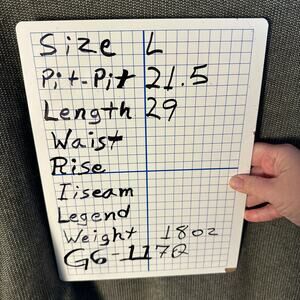 Size L
Pit-Pit 21.5
Length 29
Waist
Rise
Iiseam
Legend
Weight 18oz
G6-1170